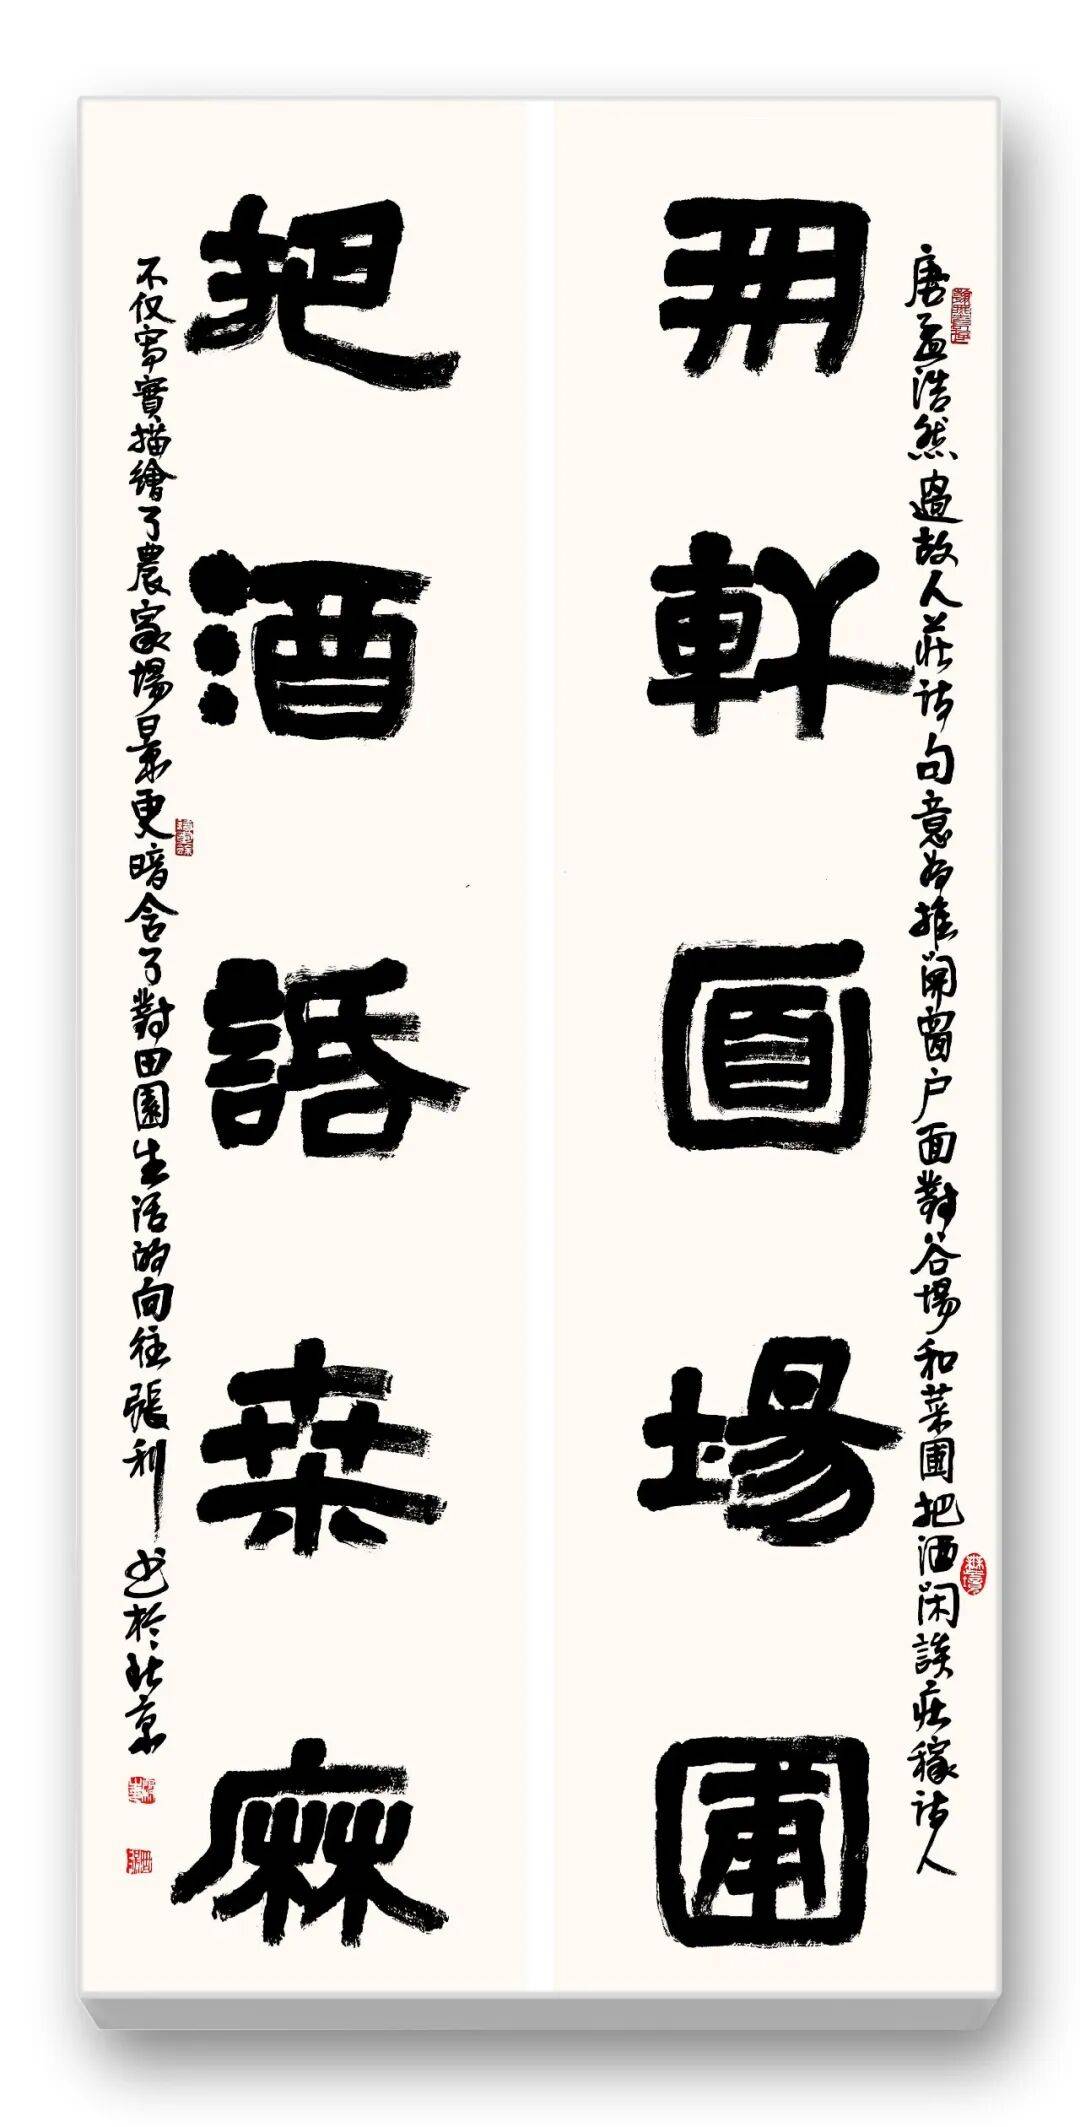 開軒面場圃
把酒話桒麻
唐孟浩然過故人莊詩句意为推開窗户面對谷場和菜圃把酒闲談莊稼詩人
不仅寫實描繪了農家場景更暗含了對田園生活的向往張利书於北京